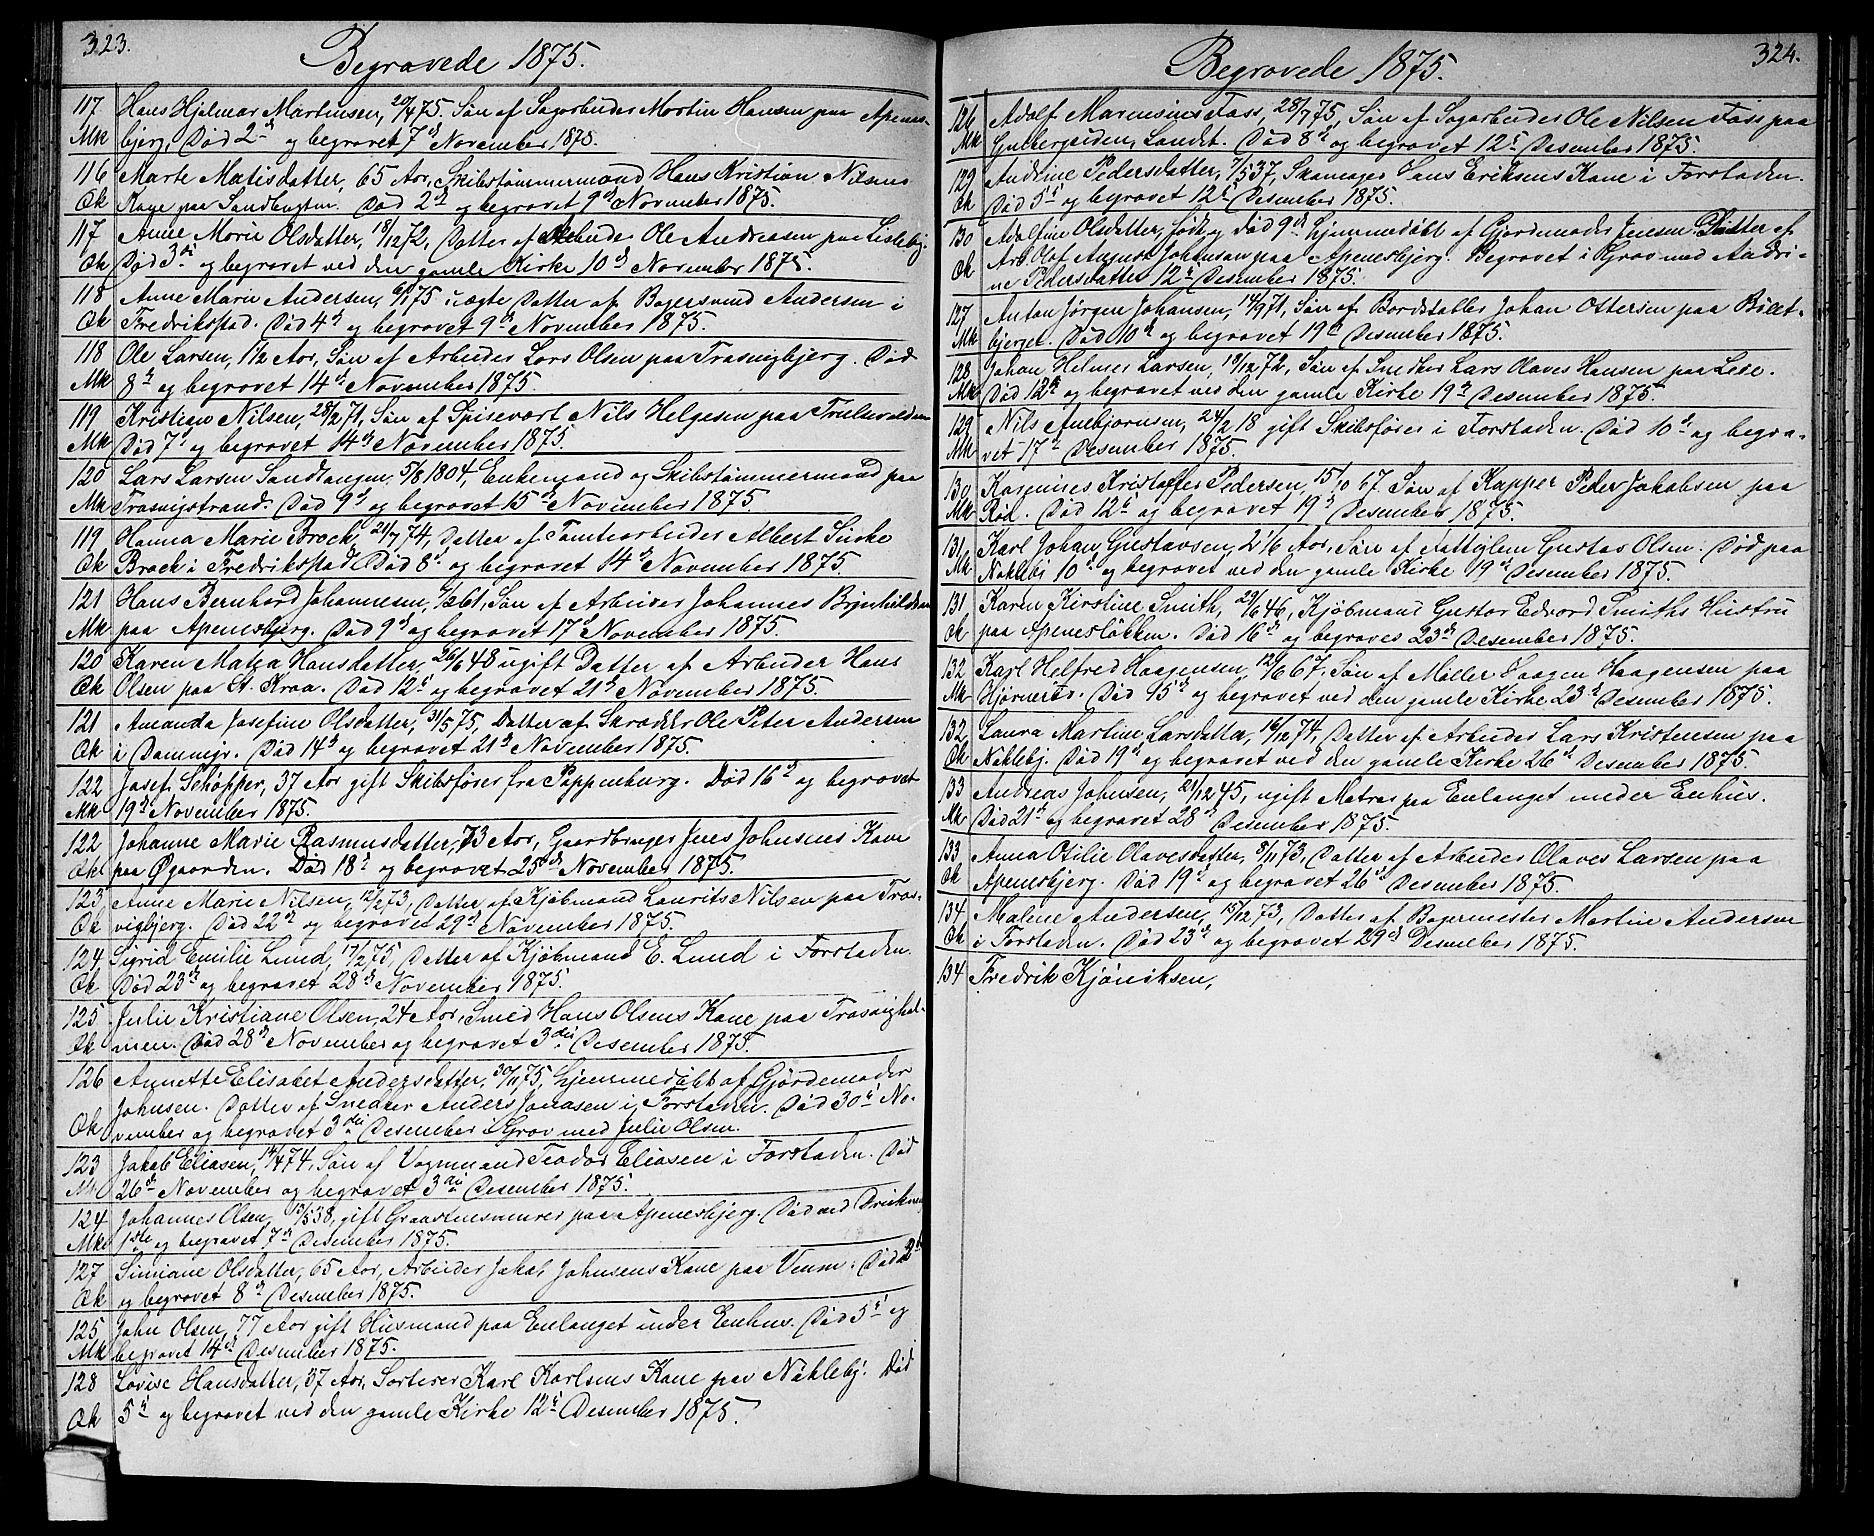 323.
Begravede 1875.
117 Hans Hjelmar Martinsen, 20/4 75. Søn af Sagarbeider Martin Hansen paa Apenes-
Mk bjerg. Død 2den og begravet 7de November 1875.
116 Marte Matisdatter, 65 Aar, Skibstømmermand Hans Kristian Nilsens
Qk Kone paa Sandbugten. Død 2den og begravet 9de November 1875.
117 Anne Marie Olsdatter, 18/12 72, Datter af Ole Andreasen paa Lisleby.
Qk Død 3die og begravet ved den gamle Kirke 10de November 1875.
118 Anne Marie Andersen, 75 uægte Datter af Bagersvend Andersen i
Qk Fredrikstad. Død 4de og begravet 9de November 1875.
118 Ole Larsen, 1 1/2 Aar, Søn af Arbeider Lars Olsen paa Trosvigbjerg. Død
Mk 8de og begravet 14de November 1875.
119 Kristian Nilsen, 28/2 71, Søn af Spisevert Nils Helgesen paa
Mk Død 7de og begravet 14de November 1875.
120 Lars Larsen Sandtangen, 5/8 1804, Enkemand og Skibstømmermand paa
Mk Trosvigstrand. Død 9de og begravet 15de November 1875.
119 Hanna Marie Brock, 21/7 74, Datter af Tomtearbeider Albert
Qk Brock i Fredrikstad. Død 8de og begravet 14de November 1875.
121 Hans Bernhard Johannesen, 61, Søn af Arbeider Johannes Brynhildsen
Mk paa Apenesbjerg. Død 9de og begravet 17de November 1875.
120 Karen Matea Hansdatter, 26/6 48 ugift Datter af Arbeider Hans
Qk Olsen paa St. Kraa. Død 12te og begravet 21de November 1875.
121 Amanda Josefine Olsdatter, 31/5 75, Datter af Skrædder Ole Peter Andersen
Qk i Dammegr. Død 14de og begravet 21de November 1875.
122 Josef Schöpper, 37 Aar gift Skibsfører fra Pappenburg. Død 16de og begravet
Mk 19de November 1875.
122 Johanne Marie Rasmusdatter, 73 Aar, Gaardbruger Jens Johnsens Kone
Qk paa Øgaarden. Død 18de og begravet 25de November 1875.
123 Anne Marie Nilsen, 12/2 73, Datter af Kjøbmand Laurits Nilsen paa Tros-
Qk vigbjerg. Død 22de og begravet 29de November 1875.
124 Sigrid Emilie Lund, 17/2 75, Datter af Kjøbmand E. Lund i Forstaden.
Qk Død 23de og begravet 28de November 1875.
125 Julie Kristiane Olsen, 24 Aar, Smed Hans Olsens Kone paa Trosvighol-
Qk men. Død 28de November og begravet 3die Desember 1875.
126 Annette Elisabet Andersdatter, 30/11 75, hjemmedøbt af Gjordemoder
Johnsen. Datter af Snedker Anders Jonasen i Forstaden. Død 30te No-
Qk vember og begravet 3die Desember i Grav med Julie Olsen.
123 Jakob Eliasen, 14/4 74, Søn af Vognmand Teodor Eliasen i Forstaden. Død
Mk 26de November og begravet 3die Desember 1875.
124 Johannes Olsen, 19/5 38, gift Graastensmurer paa Apenesbjerg. Død ved Druknen
Mk 1ste og begravet 7de Desember 1875.
127 Simiane Olsdatter, 65 Aar, Arbeider Jakob Johnsens Kone paa Veum. Død 2den
Qk og begravet 8de Desember 1875.
125 John Olsen, 77 Aar gift Husmand paa Enlanget under Enhus. Død 5te og
Mk begravet 14de Desember 1875.
128 Lovise Hansdatter, 37 Aar, Sorterer Karl Karlsens Kone paa Nökleby. Død
Qk 5te og begravet ved den gamle Kirke 12te Desember 1875.
324.
Begravede 1875.
126 Adolf Marensius Foss, 28/7 75, Søn af Sagarbeider Ole Nilsen Foss paa
Mk Gulbergsiden, Landet. Død 8de og begravet 12te Desember 1875.
129 Andrine Pedersdatter, 7/5 37, Skomager Hans Eriksens Kone i Forstaden.
Qk Død 5te og begravet 12te Desember 1875.
130 Adolfine Olsdatter, født og død 9de hjemmedøbt af Gjordemoder Jensen. Datter af
Qk Arb. Olof August Johansen paa Apenesbjerg. Begravet i Grav med Andri-
ne Pedersdatter 12te Desember 1875.
127 Anton Jørgen Johansen, 14/9 71, Søn af Bordstabler Johan Ottersen paa Bilet-
Mk bjerget. Død 10de og begravet 19de Desember 1875.
128 Johan Helmer Larsen, 19/12 72, Søn af Snedker Lars Olaves Hansen paa Leie.
Mk Død 12te og begravet ved den gamle Kirke 19de Desember 1875.
129 Nils Anbjørnsen, 24/2 18 gift Skibsfører i Forstaden. Død 10de og begra-
Mk vet 17de Desember 1875.
130 Rasmines Kristoffer Pedersen, 15/10 67. Søn af Kapper Peder Jakobsen paa
Mk Rød. Død 12te og begravet 19de Desember 1875.
131 Karl Johan Gustavsen, 2 1/6 Aar, Søn af Fattiglem Gustav Olsen. Død paa
Mk Nökleby 10de og begravet ved den gamle Kirke 19de Desember 1875.
131 Karen Kirstine Smith, 29/6 46, Kjøbmand Gustav Edvard Smiths Hustru
Qk paa Apenesløkken. Død 16de og begraves 23de Desember 1875.
132 Karl Helfred Haagensen, 12/6 67, Søn af Møller Haagen Haagensen paa
Mk Hjørnerød. Død 15de og begravet ved den gamle Kirke 23de Desember 1875.
132 Laura Martine Larsdatter, 16/12 74, Datter af Arbeider Lars Kristensen paa
Qk Nökleby. Død 19de og begravet ved den gamle Kirke 26de Desember 1875.
133 Andreas Johnsen, 21/12 45, ugift Matros paa Enlanget under Enhus.
Mk Død 21de og begravet 28de Desember 1875.
133 Anna Otilie Olavesdatter, 8/11 73, Datter af Arbeider Olaves Larsen paa
Qk Apenesbjerg. Død 19de og begravet 26de Desember 1875.
134 Malene Andersen, 15/12 73, Datter af Bagermester Martin Andersen
Qk i Forstaden. Død 23de og begravet 29de Desmeber 1875.
134 Fredrik Kjöniksen,